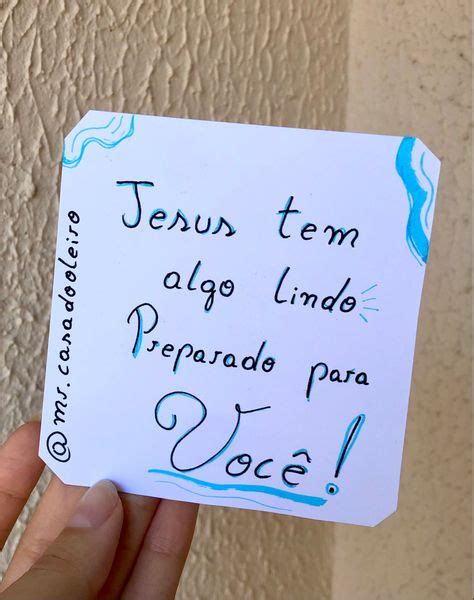 Jesus tem
algo lindo
Preparado para
Você!
@ms.casadooleiro